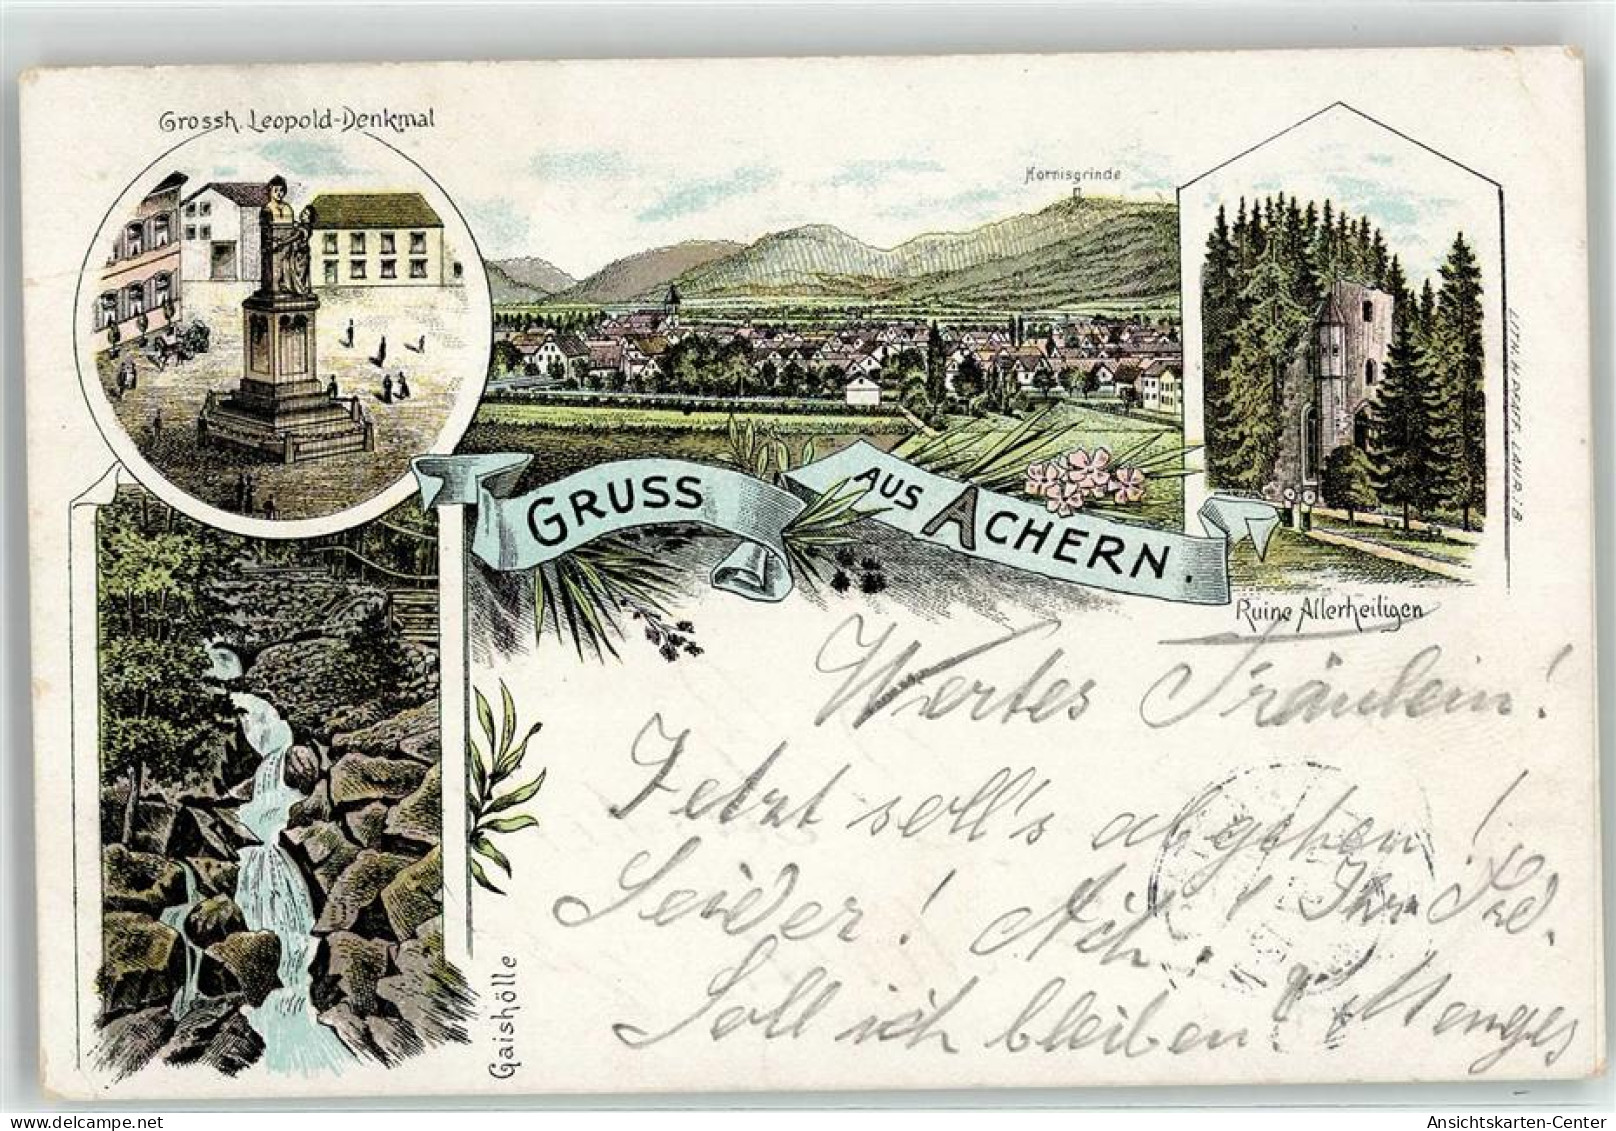 Grossh. Leopold-Denkmal
Hornisgrinde
GRUSS AUS ACHERN.
Ruine Allerheiligen
Gaishölle
Wertes Fräulein!
Jetzt soll's abgehen!
Leider! Ach!
Soll ich bleiben?
Ihr Frd.
Menges
LITH. H. PFAFF. LAHR I/B
Ansichtskarten-Center